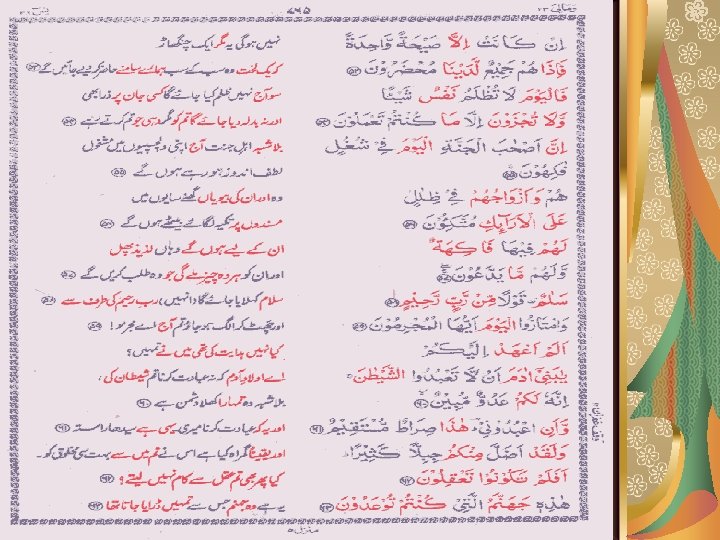 ومالی ٢٣
٨٦٥
یٰسٓ ٣٦
اِنْ كَانَتْ اِلَّا صَيْحَةً وَّاحِدَةً
نہیں ہوگی یہ مگر ایک چنگھاڑ
فَاِذَا هُمْ جَمِيْعٌ لَّدَيْنَا مُحْضَرُوْنَ ۝٥٣
کہ یک لخت وہ سب کے سب ہمارے سامنے حاضر کر دیے جائیں گے ۝٥٣
فَالْيَوْمَ لَا تُظْلَمُ نَفْسٌ شَيْئًا
سو آج نہیں ظلم کیا جائے گا کسی جان پر ذرا بھی
وَّلَا تُجْزَوْنَ اِلَّا مَا كُنْتُمْ تَعْمَلُوْنَ ۝٥٤
اور نہ بدلہ دیا جائے گا تم کو مگر وہی جو تم کرتے تھے ۝٥٤
اِنَّ اَصْحٰبَ الْجَنَّةِ الْيَوْمَ فِيْ شُغُلٍ
بلاشبہ اہلِ جنت آج اپنی دلچسپیوں میں مشغول
فٰكِهُوْنَ ۝٥٥
لطف اندوز ہو رہے ہوں گے ۝٥٥
هُمْ وَاَزْوَاجُهُمْ فِيْ ظِلٰلٍ
وہ اور ان کی بیویاں گھنے سایوں میں
عَلَى الْاَرَآىِٕكِ مُتَّكِـُٔوْنَ ۝٥٦
مسندوں پر تکیہ لگائے بیٹھے ہوں گے ۝٥٦
لَهُمْ فِيْهَا فَاكِهَةٌ
ان کے لیے ہوں گے وہاں لذیذ پھل
وَّلَهُمْ مَّا يَدَّعُوْنَ ۝٥٧
اور ان کو ہر وہ چیز ملے گی جو وہ طلب کریں گے ۝٥٧
سَلٰمٌ قَوْلًا مِّنْ رَّبٍّ رَّحِيْمٍ ۝٥٨
سلام کہلایا جائے گا (انہیں) ربِ رحیم کی طرف سے ۝٥٨
وَامْتَازُوا الْيَوْمَ اَيُّهَا الْمُجْرِمُوْنَ ۝٥٩
اور چھٹ کر الگ ہو جاؤ تم آج اے مجرمو! ۝٥٩
اَلَمْ اَعْهَدْ اِلَيْكُمْ
کیا نہیں ہدایت کی تھی میں نے تمہیں؟
يٰبَنِيْٓ اٰدَمَ اَنْ لَّا تَعْبُدُوا الشَّيْطٰنَ
اے اولادِ آدم کہ نہ عبادت کرنا تم شیطان کی،
اِنَّهٗ لَكُمْ عَدُوٌّ مُّبِيْنٌ ۝٦٠
بلاشبہ وہ تمہارا کھلا دشمن ہے ۝٦٠
وَّاَنِ اعْبُدُوْنِيْ هٰذَا صِرَاطٌ مُّسْتَقِيْمٌ ۝٦١
اور یہ کہ عبادت کرنا میری یہی ہے سیدھا راستہ ۝٦١
وَلَقَدْ اَضَلَّ مِنْكُمْ جِبِلًّا كَثِيْرًا
اور یقیناً گمراہ کیا ہے اس نے تم میں سے بہت سی مخلوق کو۔
اَفَلَمْ تَكُوْنُوْا تَعْقِلُوْنَ ۝٦٢
کیا پھر بھی تم عقل سے کام نہیں لیتے؟ ۝٦٢
هٰذِهٖ جَهَنَّمُ الَّتِيْ كُنْتُمْ تُوْعَدُوْنَ ۝٦٣
یہ ہے وہ جہنم جس سے تمہیں ڈرایا جاتا تھا ۝٦٣
منزل ٥